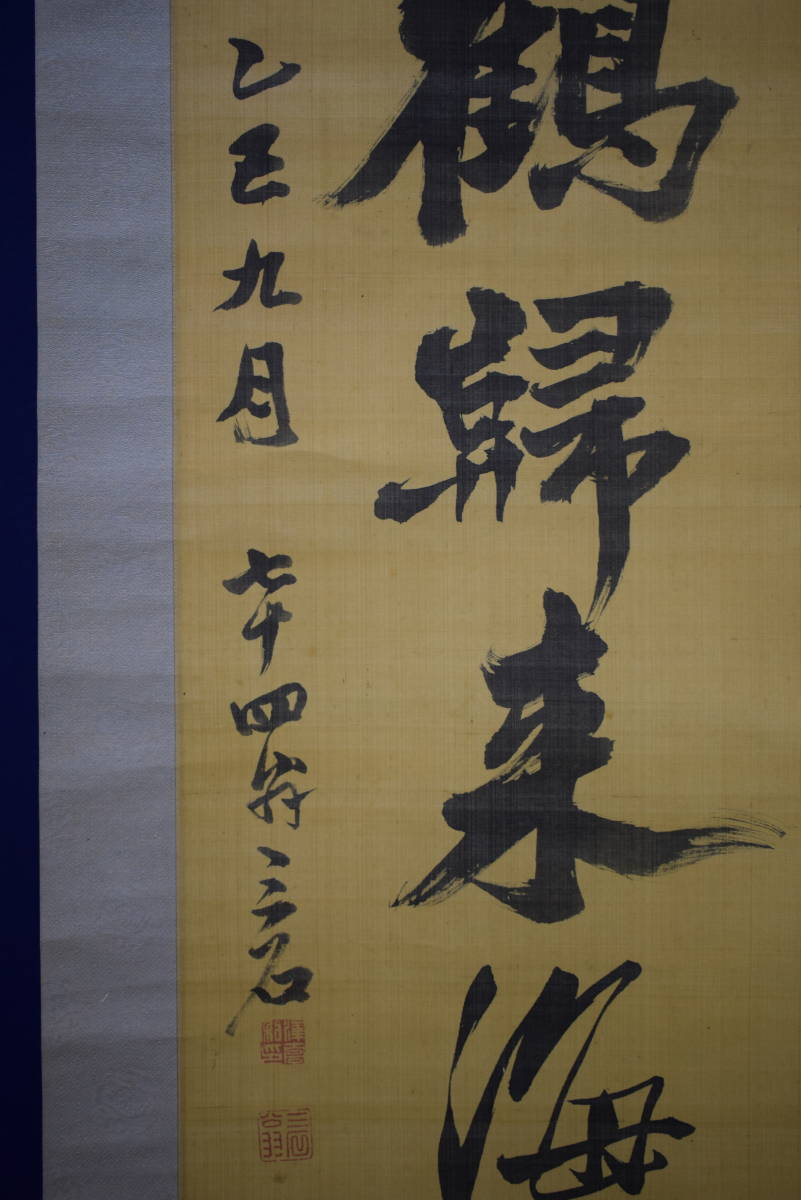 鶴歸来海
乙巳九月 七十四翁三石